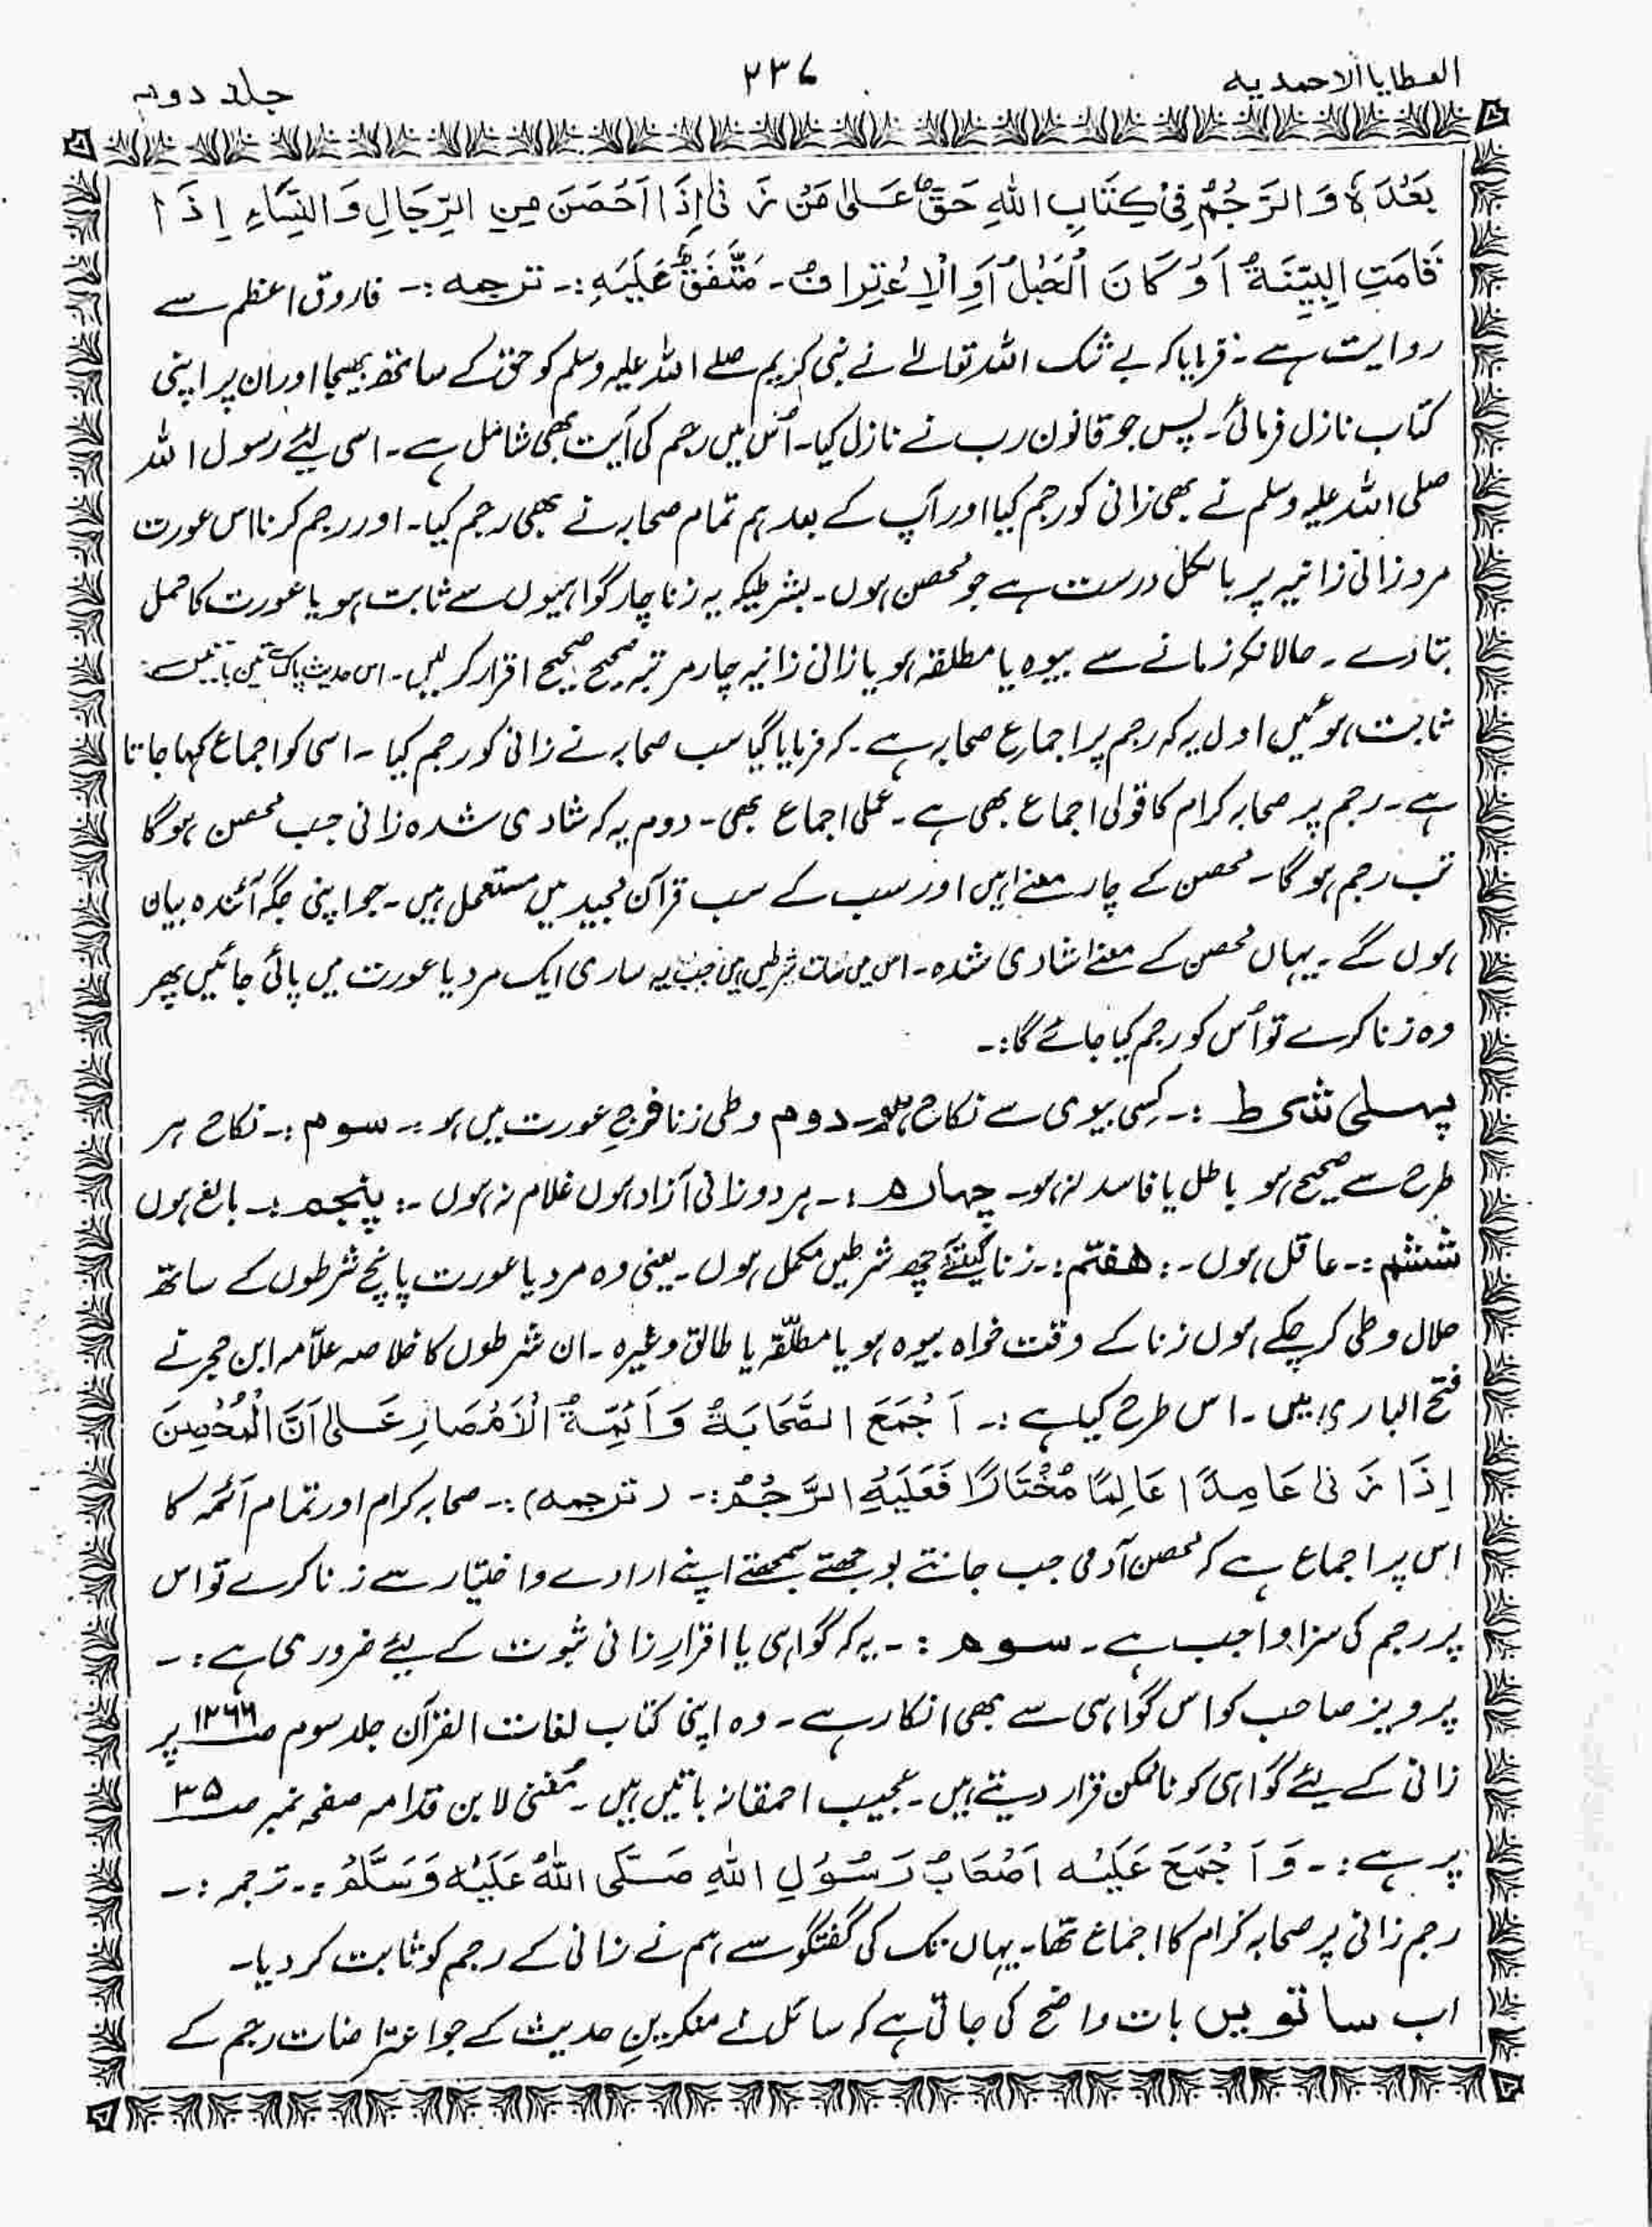 العطایا الاحمدیہ
۲۳۷
جلد دوم
بَعْدَہٗ وَالرَّجْمُ فِیْ کِتَابِ اللہِ حَقٌّ عَلٰی مَنْ زَنٰی اِذَا اَحْصَنَ مِنَ الرِّجَالِ وَالنِّسَاءِ اِذَا
قَامَتِ الْبَیِّنَۃُ اَوْ کَانَ الْحَبْلُ اَوِ الْاِعْتِرَافُ۔ مُتَّفَقٌ عَلَیْہِ:۔ ترجمہ:۔ فاروق اعظم سے
روایت ہے۔ فرمایا کہ بے شک اللہ تعالےٰ نے نبی کریم صلے اللہ علیہ وسلم کو حق کے ساتھ بھیجا اور ان پر اپنی
کتاب نازل فرمائی۔ پس جو قانون رب نے نازل کیا۔ اُس میں رجم کی آیت بھی شامل ہے۔ اسی لیئے رسول اللہ
صلی اللہ علیہ وسلم نے بھی زانی کو رجم کیا اور آپ کے بعد ہم تمام صحابہ نے بھی رجم کیا۔ اور رجم کرنا اس عورت
مرد زانی زانیہ پر بالکل درست ہے جو محصن ہوں۔ بشرطیکہ یہ زنا چار گواہیوں سے ثابت ہو یا عورت کا حمل
بتا دے۔ حالانکہ زمانے سے بیوہ یا مطلقہ ہو یا زانی زانیہ چار مرتبہ صحیح صحیح اقرار کر لیں۔ اس حدیث پاک سے تین باتیں
ثابت ہوئیں اول یہ کہ رجم پر اجماع صحابہ ہے۔ کہ فرمایا گیا سب صحابہ نے زانی کو رجم کیا ۔ اسی کو اجماع کہا جاتا
ہے۔ رجم پر صحابہ کرام کا قولی اجماع بھی ہے۔ عملی اجماع بھی۔ دوم یہ کہ شادی شدہ زانی جب محصن ہوگا
تب رجم ہوگا۔ محصن کے چار معنےٰ ہیں اور سب کے سب قرآن مجید میں مستعمل ہیں۔ جو اپنی جگہ آئندہ بیان
ہوں گے۔ یہاں محصن کے معنےٰ شادی شدہ۔ اس میں سات شرطیں ہیں جب یہ ساری ایک مرد یا عورت میں پائی جائیں پھر
وہ زنا کرے تو اُس کو رجم کیا جائے گا:۔
پہلی شرط :۔ کسی بیوی سے نکاح ہو۔ دوم وطی زنا فرجِ عورت میں ہو :۔ سوم :۔ نکاح ہر
طرح سے صحیح ہو باطل یا فاسد نہ ہو۔ چہارم :۔ ہر دو زانی آزاد ہوں غلام نہ ہوں ۔: پنجم :۔ بالغ ہوں
ششم :۔ عاقل ہوں ۔: ھفتم :۔ زنا کیلئے چھ شرطیں مکمل ہوں۔ یعنی وہ مرد یا عورت پانچ شرطوں کے ساتھ
حلال وطی کر چکے ہوں زنا کے وقت خواہ بیوہ ہو یا مطلّقہ یا طالق وغیرہ ۔ ان شرطوں کا خلاصہ علّامہ ابن حجر نے
فتح الباری میں۔ اس طرح کیا ہے :۔ اَجْمَعَ الصَّحَابَۃُ وَ اَئِمَّۃُ الْاَمْصَارِ عَلٰی اَنَّ الْمُحْصِنَ
اِذَا زَنٰی عَامِدًا عَالِمًا مُخْتَارًا فَعَلَیْہِ الرَّجْمُ :۔ (ترجمہ) :۔ صحابہ کرام اور تمام آئمہ کا
اس پر اجماع ہے کہ محصن آدمی جب جانتے بوجھتے سمجھتے اپنے ارادے و اختیار سے زنا کرے تو اس
پر رجم کی سزا واجب ہے۔ سوم :۔ یہ کہ گواہی یا اقرارِ زانی ثبوت کے لیئے ضروری ہے :۔
پرویز صاحب کو اس گواہی سے بھی انکار ہے۔ وہ اپنی کتاب لغات القرآن جلد سوم صـ۱۳۶۶ پر
زانی کے لیئے گواہی کو ناممکن قرار دیتے ہیں۔ عجیب احمقانہ باتیں ہیں ۔ مُغنی لابن قدامہ صفحہ نمبر صـ۳۵
پر ہے :۔ وَ اَجْمَعَ عَلَیْہِ اَصْحَابُ رَسُوْلِ اللہِ صَلَّی اللہُ عَلَیْہِ وَسَلَّمَ :۔ ترجمہ :۔
رجم زانی پر صحابہ کرام کا اجماع تھا۔ یہاں تک کی گفتگو سے ہم نے زانی کے رجم کو ثابت کر دیا۔
اب ساتویں بات واضح کی جاتی ہے کہ سائل نے منکرینِ حدیث کے جو اعتراضات رجم کے